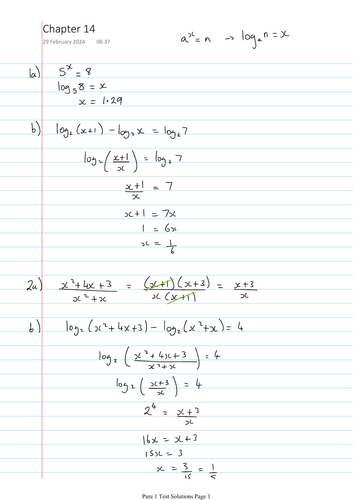 Chapter 14
29 February 2024 08:37
aˣ = n → logₐn = x
1a) 5ˣ = 8
log₅8 = x
x = 1.29
b) log₂(x+1) - log₂x = log₂7
log₂((x+1)/x) = log₂7
(x+1)/x = 7
x+1 = 7x
1 = 6x
x = 1/6
2a) (x²+4x+3)/(x²+x) = ((x+1)(x+3))/(x(x+1)) = (x+3)/x
b) log₂(x²+4x+3) - log₂(x²+x) = 4
log₂((x²+4x+3)/(x²+x)) = 4
log₂((x+3)/x) = 4
2⁴ = (x+3)/x
16x = x+3
15x = 3
x = 3/15 = 1/5
Pure 1 Test Solutions Page 1